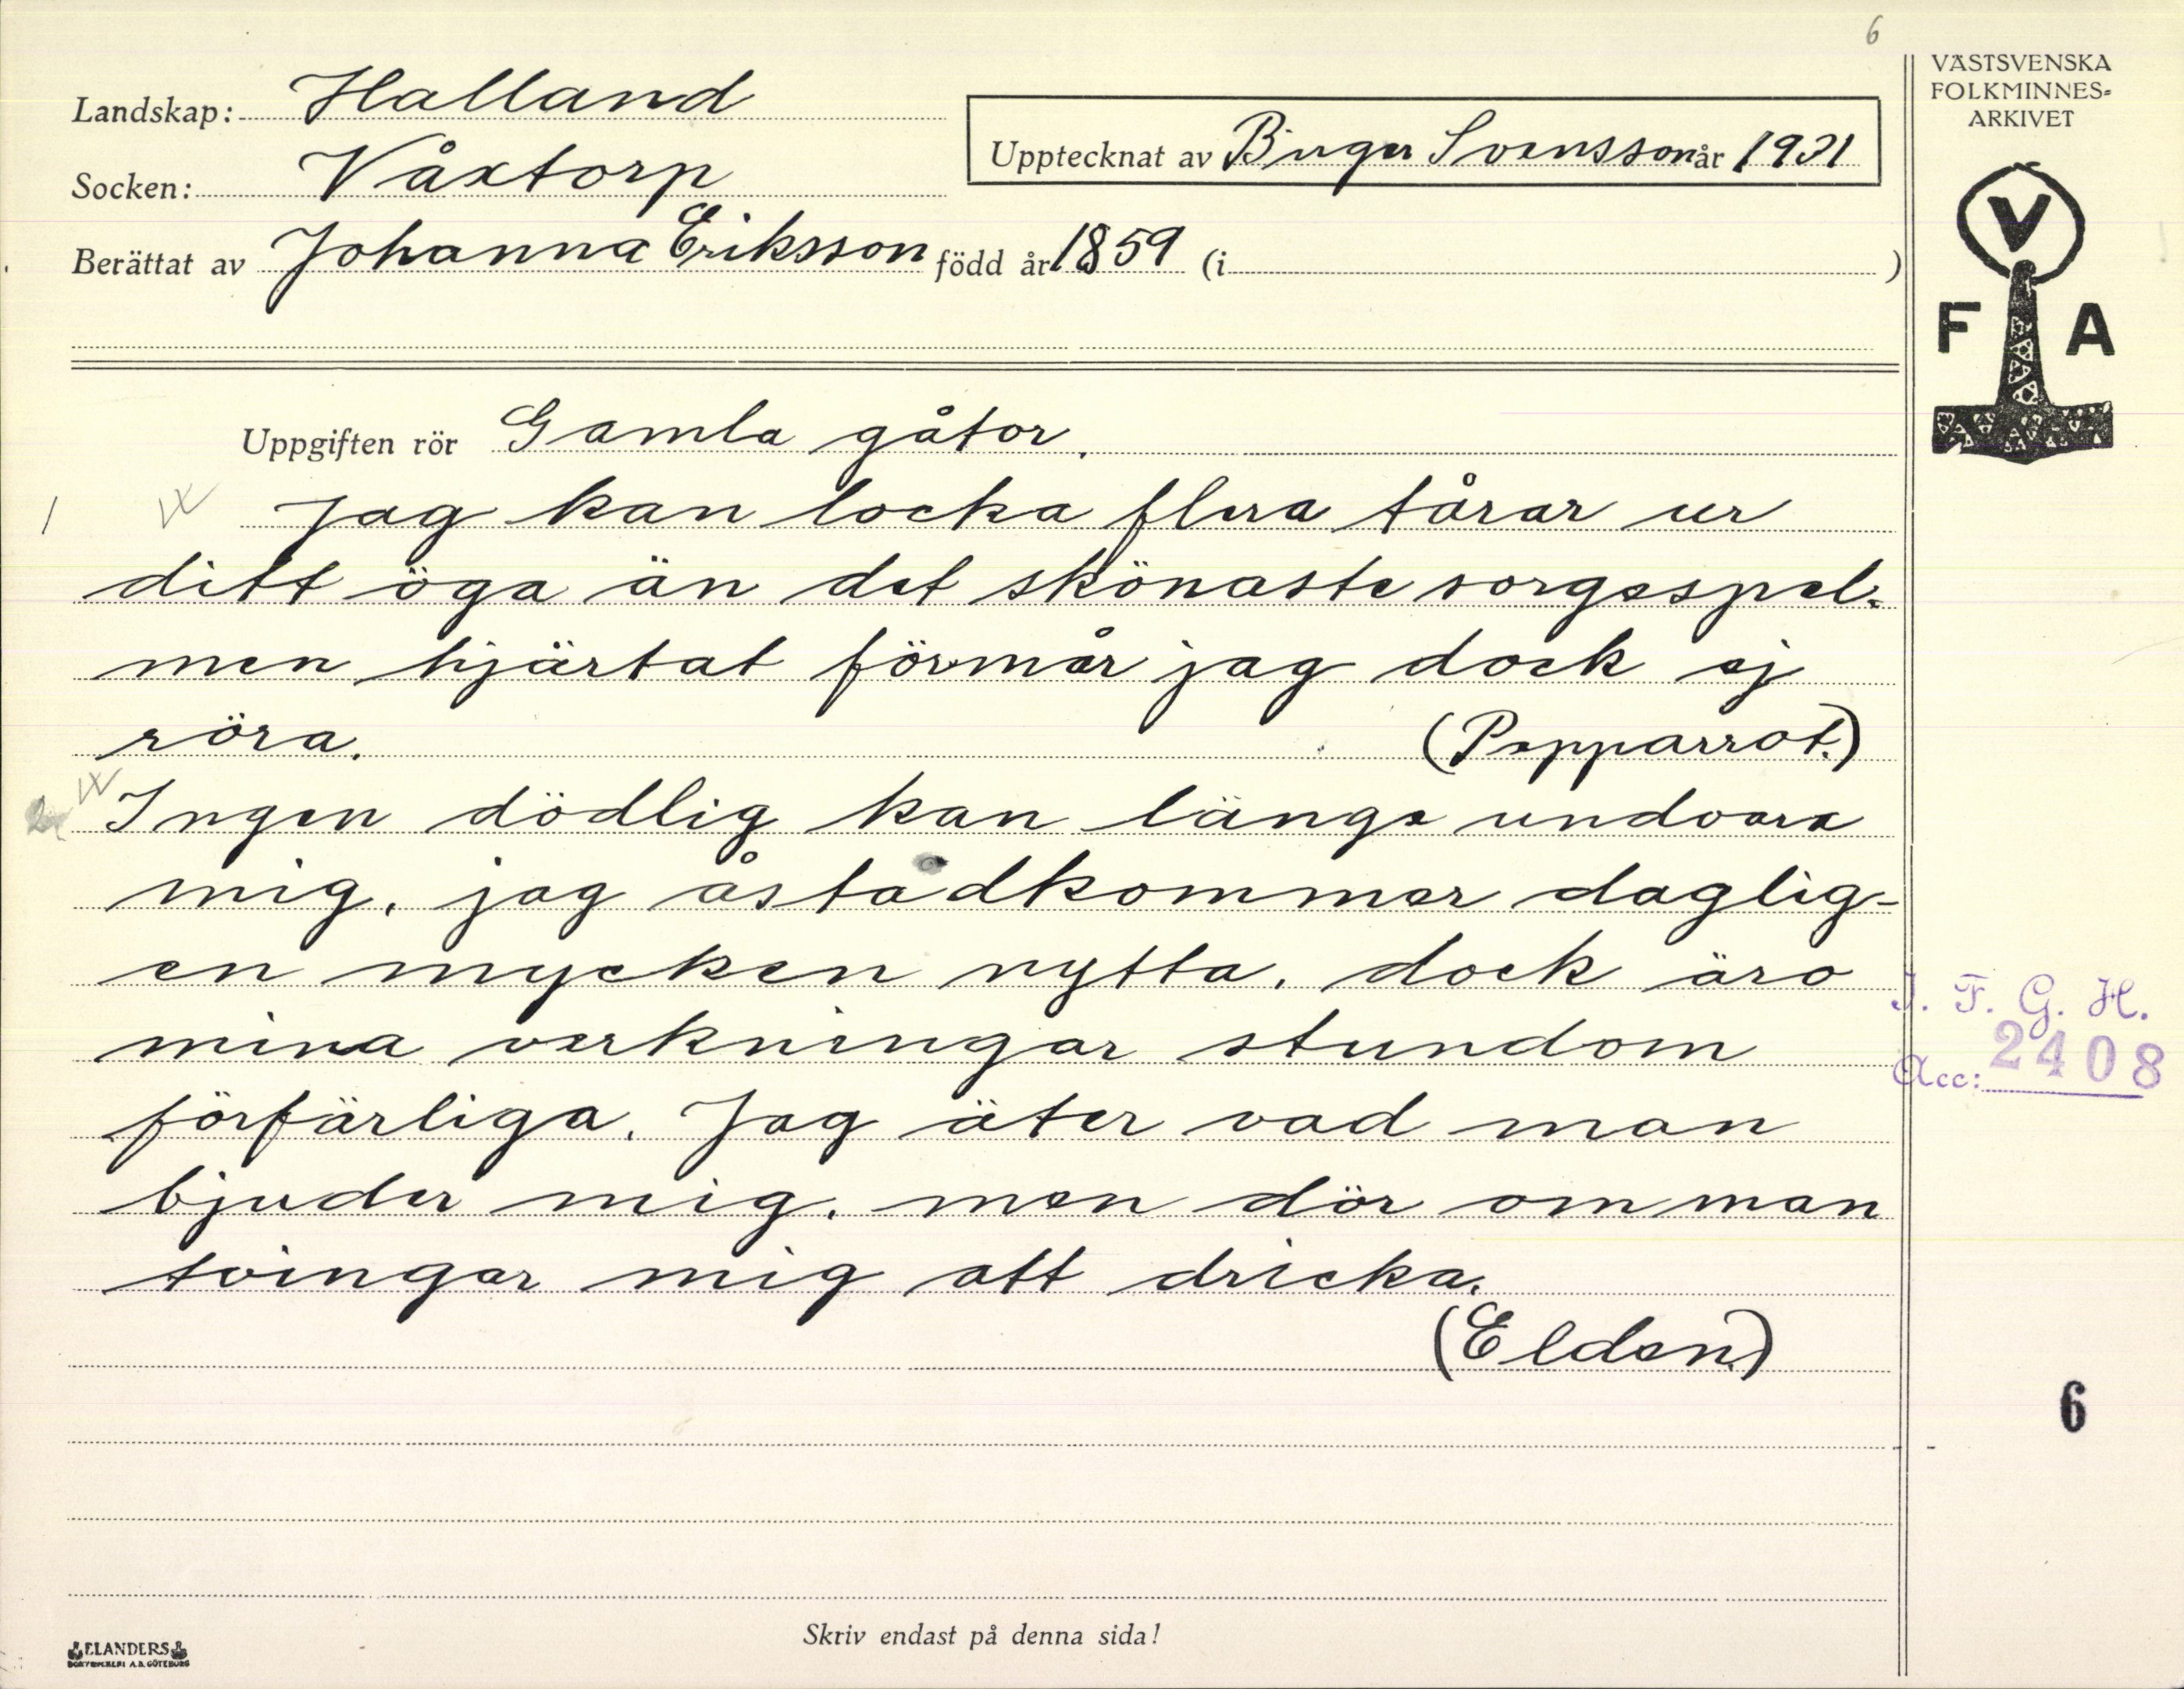 6
VÄSTSVENSKA
FOLKMINNES-
ARKIVET
Landskap: Halland
Upptecknat av Birger Svensson år 1931
Socken: Våxtorp
Berättat av Johanna Eriksson född år 1859 (i )
V
F A
Uppgiften rör Gamla gåtor.
1 Jag kan locka flera tårar ur
ditt öga än det skönaste sorgespel.
men hjärtat förmår jag dock ej
röra. (Pepparrot.)
2 Ingen dödlig kan länge undvara
mig, jag åstadkommer daglig-
en mycken nytta, dock äro
mina verkningar stundom
förfärliga. Jag äter vad man
bjuder mig, men dör om man
tvingar mig att dricka.
(Elden.)
I. F. G. H.
Acc: 2408
6
Skriv endast på denna sida!
ELANDERS
BOKTRYCKERI A.B. GÖTEBORG